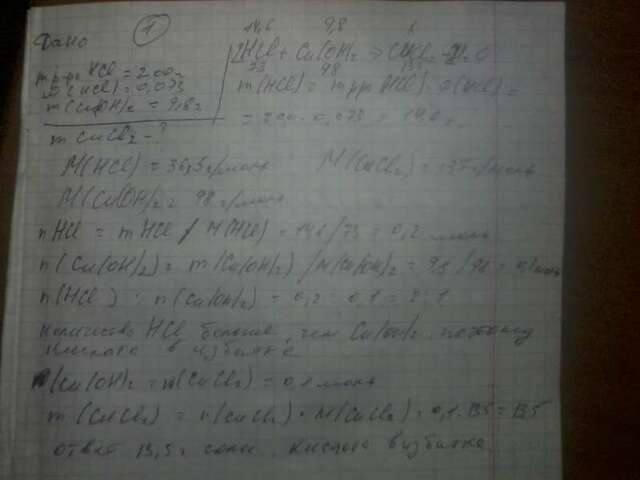 1
Дано
m р-ра HCl = 200г
ω(HCl) = 0,073
m(Cu(OH)2 = 9,8г
m CuCl2 - ?
14,6 9,8 x
2HCl + Cu(OH)2 → CuCl2 + 2H2O
73 98
m(HCl) = m р-ра(HCl) · ω(HCl) =
= 200 · 0,073 = 14,6 г.
M(HCl) = 36,5 г/моль M(CuCl2) = 137 г/моль
M(Cu(OH)2 = 98 г/моль
n HCl = m HCl / M(HCl) = 14,6/73 = 0,2 моль
n(Cu(OH)2) = m(Cu(OH)2) / M(Cu(OH)2 = 9,8/98 = 0,1 моль
n(HCl) : n(Cu(OH)2) = 0,2 : 0,1 = 2:1
количество HCl больше, чем Cu(OH)2, поэтому
кислота в избытке
n(Cu(OH)2 = n(CuCl2) = 0,1 моль
m(CuCl2) = n(CuCl2) · M(CuCl2) = 0,1 · 135 = 13,5
ответ 13,5 г соли. кислота в избытке.